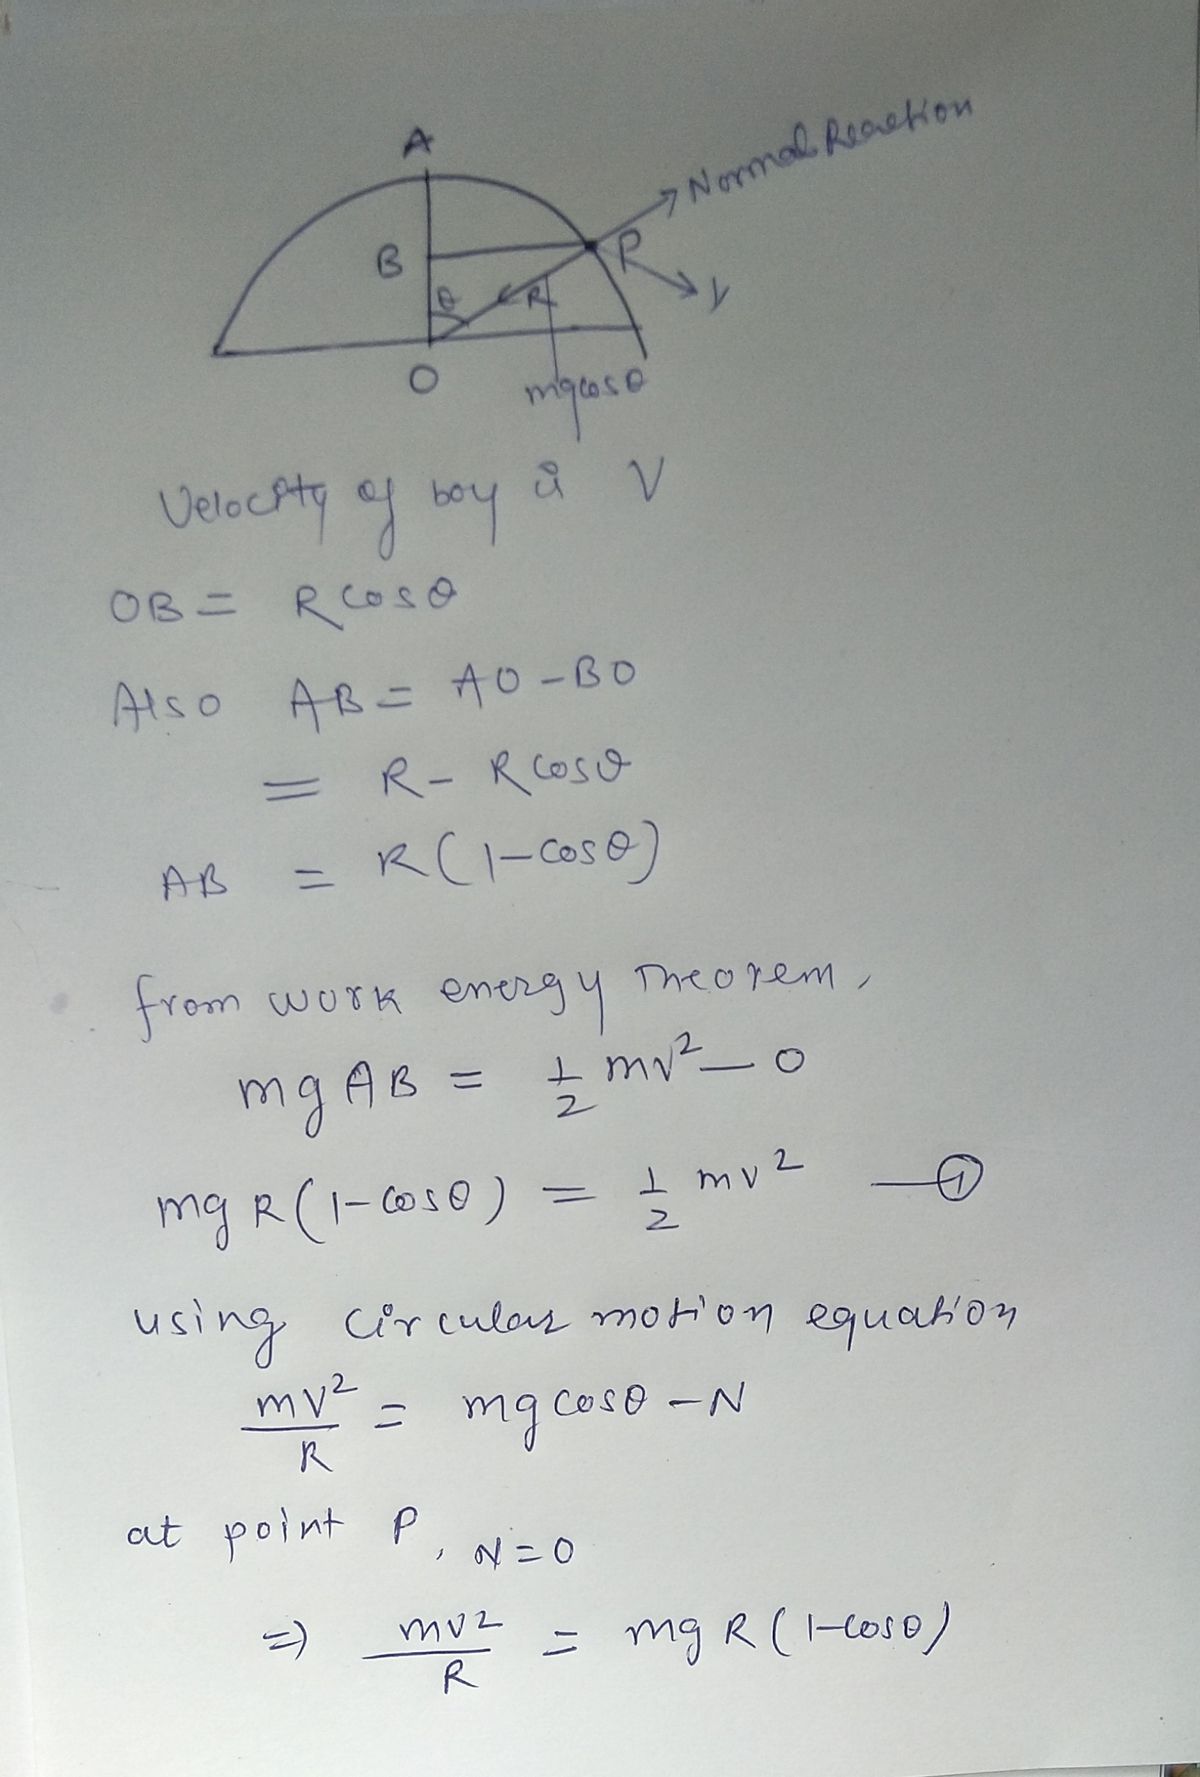 A
Normal Reaction
B
P
θ
R
V
O
mgcosθ
Velocity of boy is V
OB = Rcosθ
Also AB = AO - BO
= R - Rcosθ
AB = R(1-cosθ)
from work energy Theorem,
mg AB = 1/2 mv² - 0
mg R(1-cosθ) = 1/2 mv² — ①
using circular motion equation
mv²/R = mg cosθ - N
at point P, N=0
⇒ mv²/R = mg R(1-cosθ)